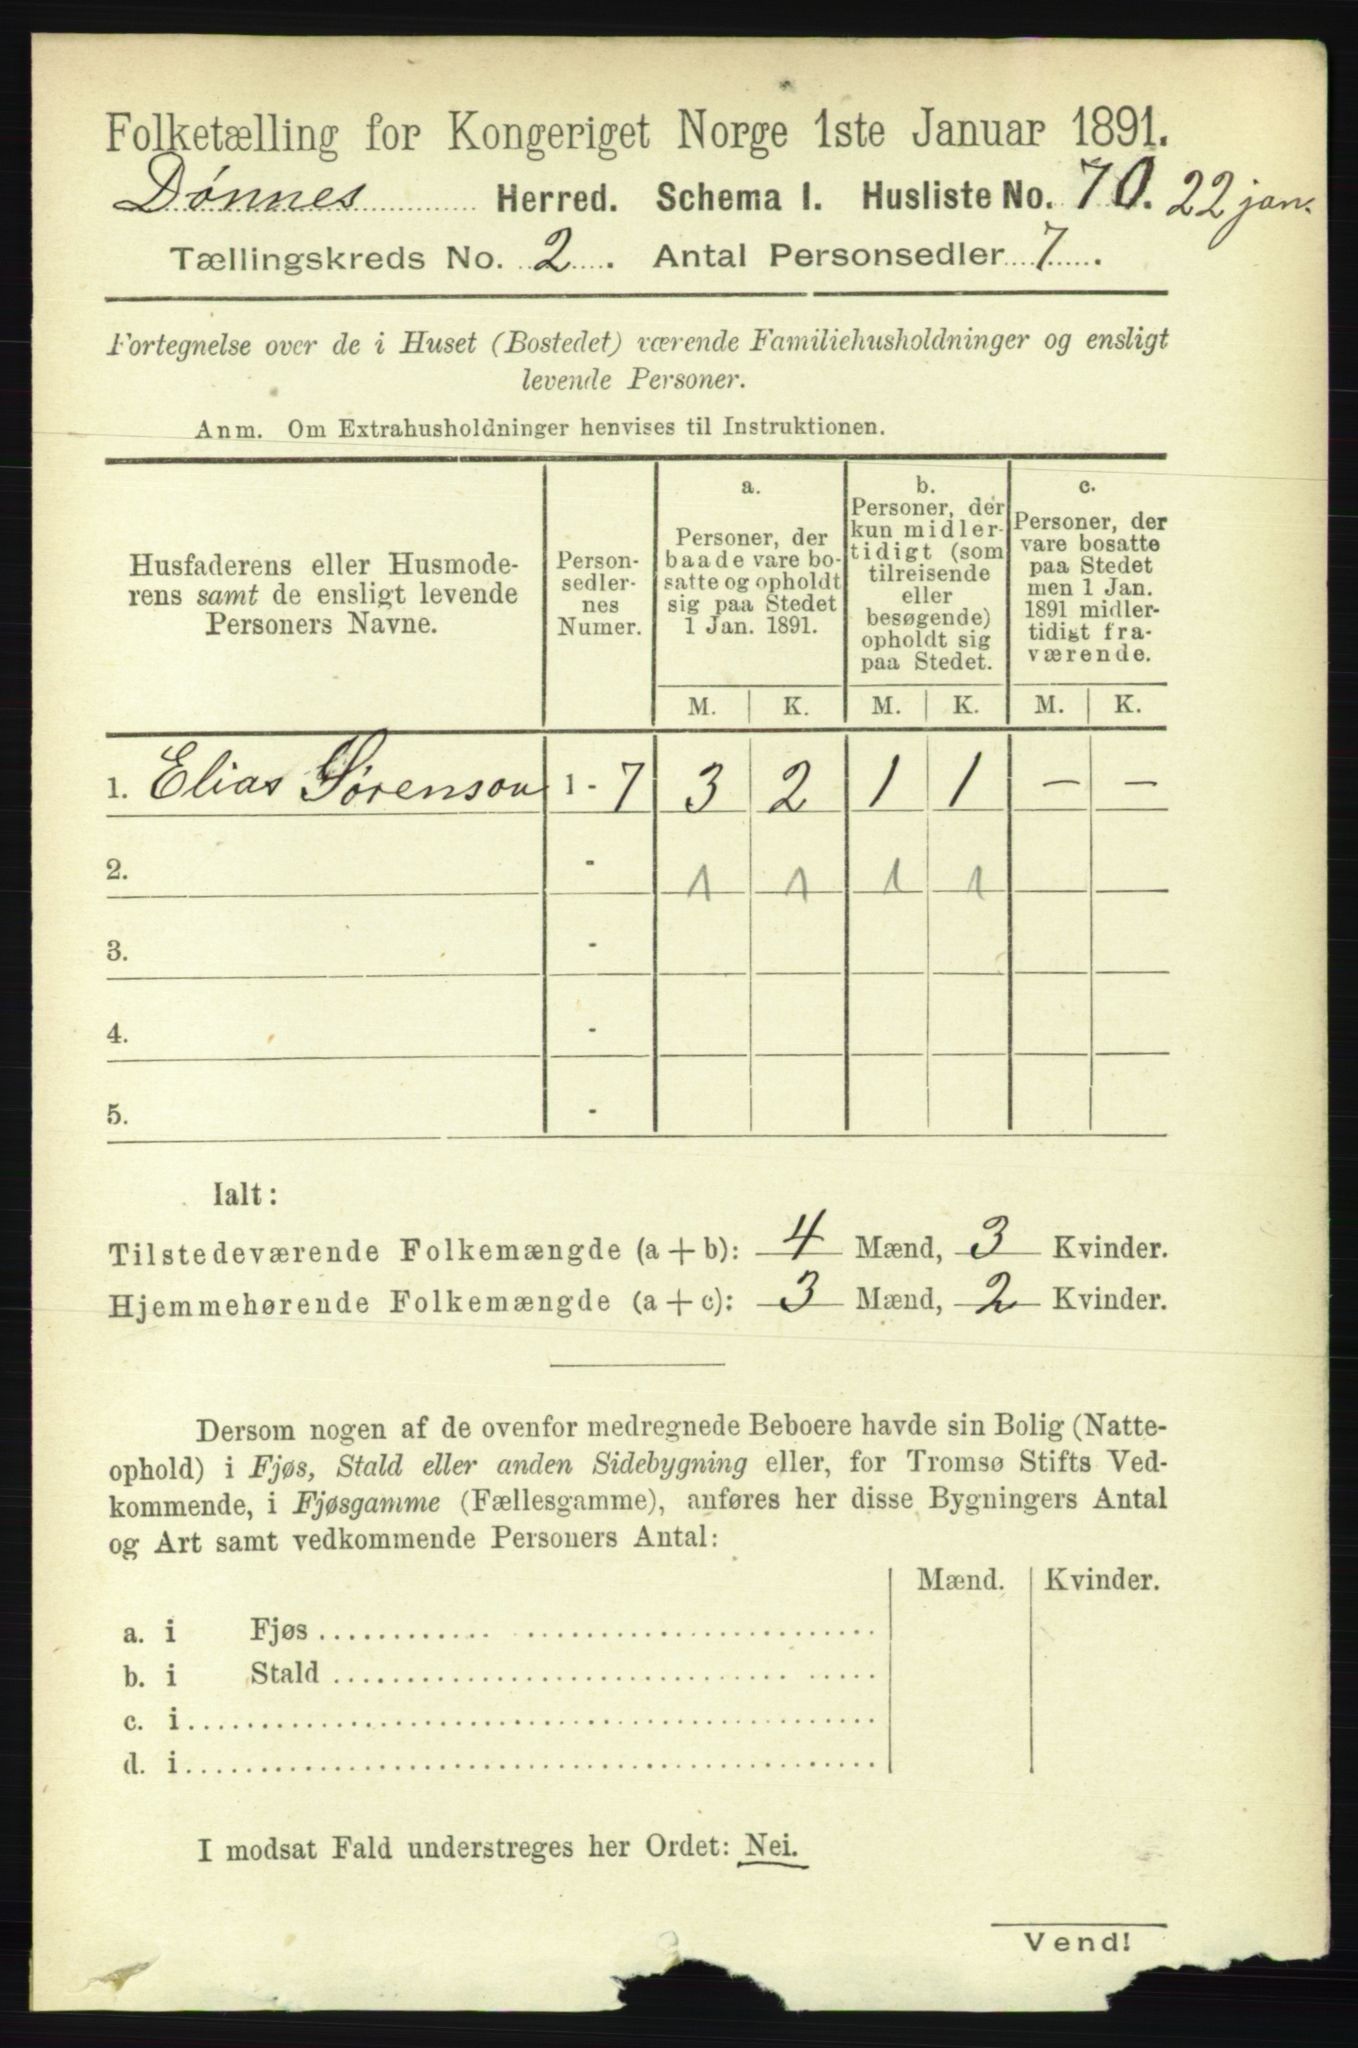 Folketælling for Kongeriget Norge 1ste Januar 1891.
Dønnes Herred. Schema I. Husliste No. 70. 22 jan.
Tællingskreds No. 2. Antal Personsedler 7.
Fortegnelse over de i Huset (Bostedet) værende Familiehusholdninger og ensligt
levende Personer.
Anm. Om Extrahusholdninger henvises til Instruktionen.
Husfaderens eller Husmode-
rens samt de ensligt levende
Personers Navne.
Person-
sedler-
nes
Numer.
a.
Personer, der
baade vare bo-
satte og opholdt
sig paa Stedet
1 Jan. 1891.
b.
Personer, der
kun midler-
tidigt (som
tilreisende
eller
besøgende)
opholdt sig
paa Stedet.
c.
Personer, der
vare bosatte
paa Stedet
men 1 Jan.
1891 midler-
tidigt fra-
værende.
M. K. M. K. M. K.
1. Elias Sørenson 1 - 7 3 2 1 1 — —
2. - 1 1 1 1
3. -
4. -
5. -
Ialt:
Tilstedeværende Folkemængde (a + b): 4 Mænd, 3 Kvinder.
Hjemmehørende Folkemængde (a + c): 3 Mænd, 2 Kvinder.
Dersom nogen af de ovenfor medregnede Beboere havde sin Bolig (Natte-
ophold) i Fjøs, Stald eller anden Sidebygning eller, for Tromsø Stifts Ved-
kommende, i Fjøsgamme (Fællesgamme), anføres her disse Bygningers Antal
og Art samt vedkommende Personers Antal:
Mænd. Kvinder.
a. i Fjøs
b. i Stald
c. i
d. i
I modsat Fald understreges her Ordet: Nei.
Vend!